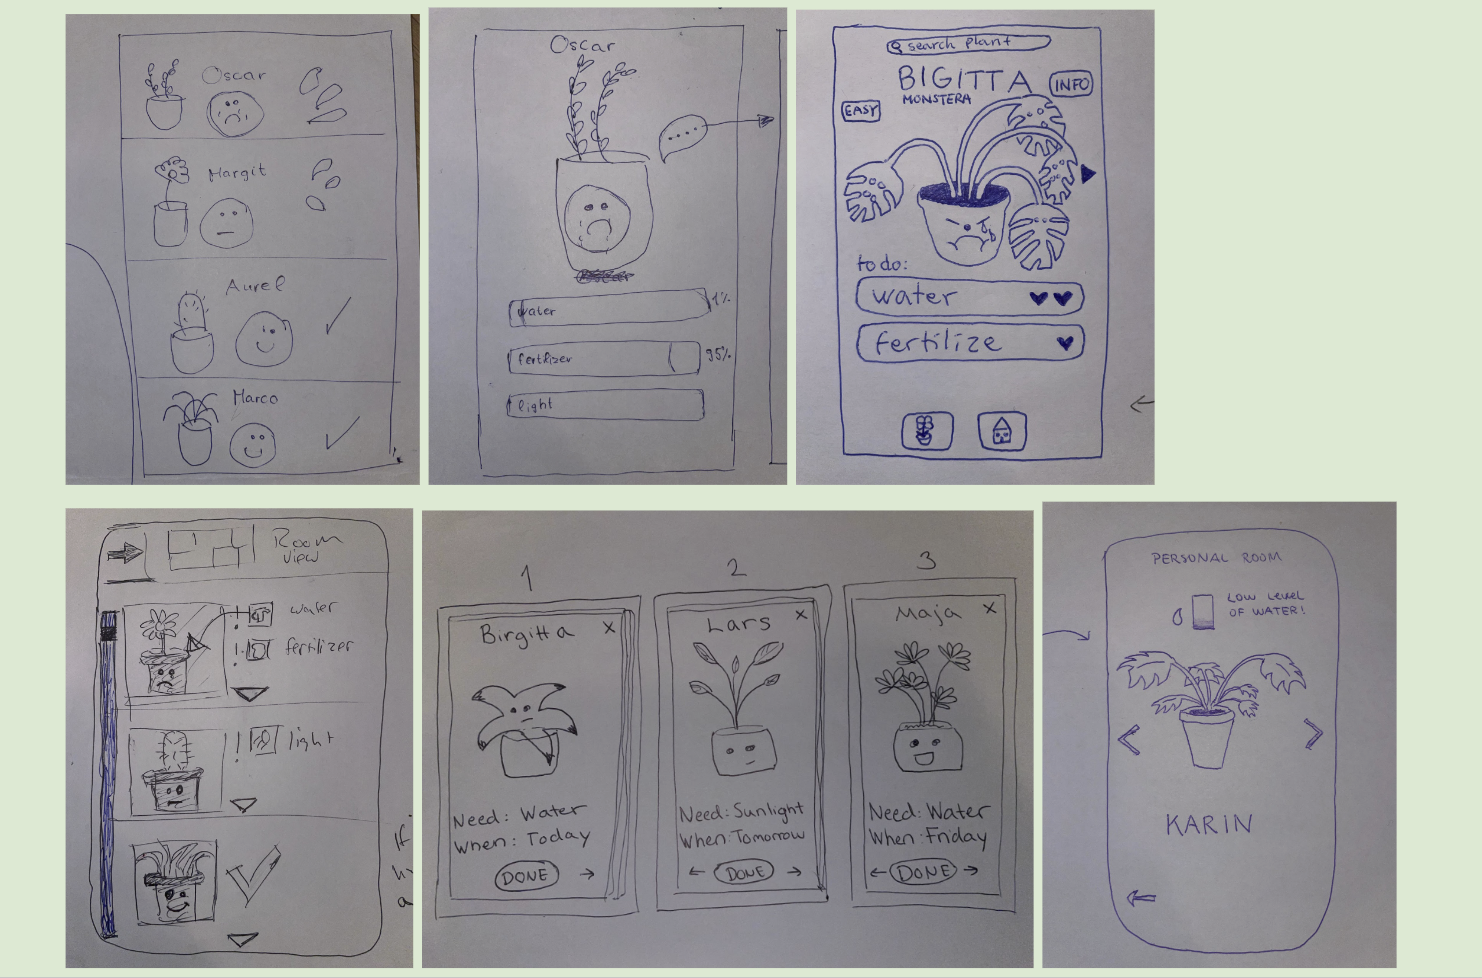 Oscar
Margit
Aurel
Marco
Oscar
water
1%
fertilizer
95%
light
search plant
BIGITTA
MONSTERA
INFO
EASY
to do:
water
fertilize
Room
view
! water
! fertilizer
! light
1
Birgitta X
Need: Water
When: Today
DONE
2
Lars X
Need: Sunlight
When: Tomorrow
DONE
3
Maja X
Need: Water
When: Friday
DONE
PERSONAL ROOM
LOW LEVEL
OF WATER!
KARIN